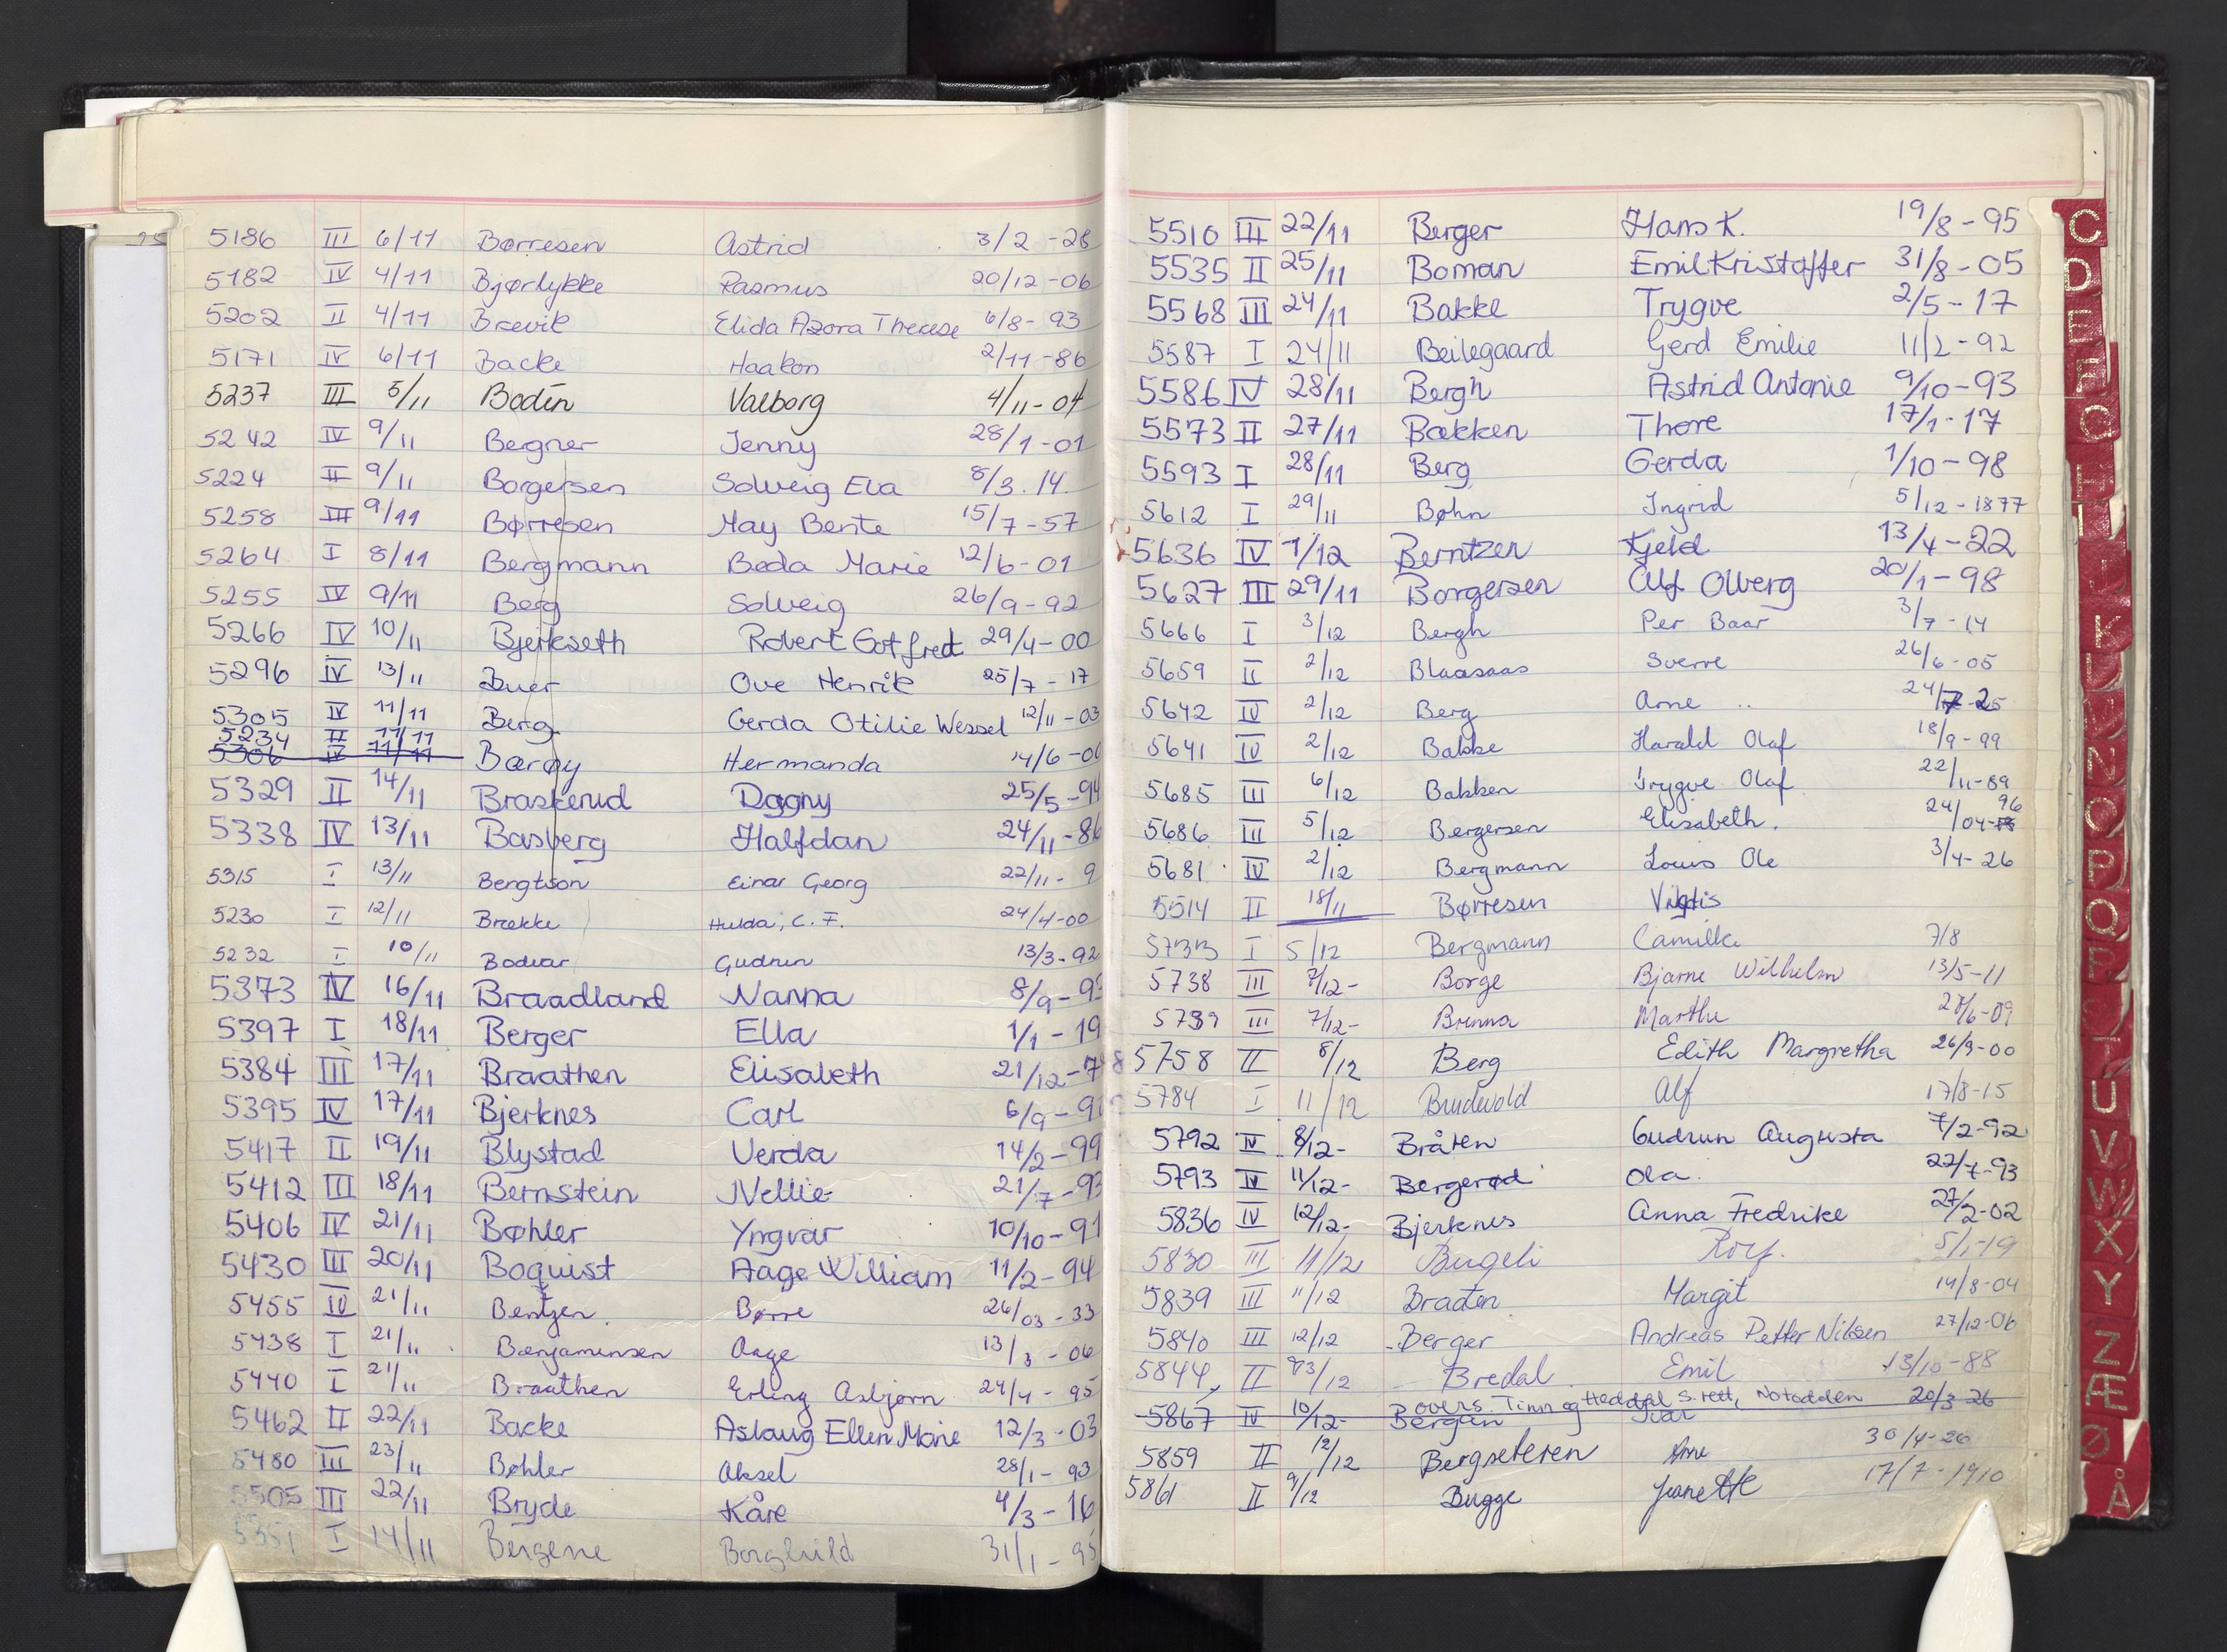 5186 III 6/11 Børresen Astrid 3/2-28
5182 IV 4/11 Bjørlykke Rasmus 20/12-06
5202 II 4/11 Brevik Elida Azora Therese 6/8-93
5171 IV 6/11 Backe Haakon 2/11-86
5237 III 5/11 Bodin Valborg 4/11-04
5242 IV 9/11 Begner Jenny 28/1-01
5224 II 9/11 Borgersen Solveig Eva 8/3.14
5258 III 9/11 Børresen May Bente 15/7-57
5264 I 8/11 Bergmann Beda Marie 12/6-01
5255 IV 9/11 Berg Solveig 26/9-92
5266 IV 10/11 Bjerkseth Robert Gotfred 29/4-00
5296 IV 13/11 Buer Ove Henrik 25/7-17
5305 IV 11/11 Berg Gerda Otilie Wessel 12/11-03
5234 II 11/11
5306 IV 11/11 Barøy Hermanda 14/6-00
5329 II 14/11 Braskerud Dagny 25/5-94
5338 IV 13/11 Basberg Halfdan 24/11-86
5315 I 13/11 Bengtson Einar Georg 22/11-9
5230 I 12/11 Brekke Hulda, C. F. 24/4-00
5232 I 10/11 Bodvar Gudrun 13/3-92
5373 IV 16/11 Braadland Nanna 8/9-9
5397 I 18/11 Berger Ella 1/1-19
5384 III 17/11 Braathen Elisabeth 21/12-78
5395 IV 17/11 Bjerknes Carl 6/9-9
5417 II 19/11 Blystad Verda 14/2-99
5412 III 18/11 Bernstein Nellie 21/7-93
5406 IV 21/11 Bøhler Yngvar 10/10-91
5430 III 20/11 Boquist Aage William 11/2-94
5455 IV 21/11 Bentzen Børre 26/03-33
5438 I 21/11 Benjaminsen Aage 13/3-06
5440 I 21/11 Braathen Erling Asbjørn 24/4-95
5462 II 22/11 Backe Aslaug Ellen Marie 12/3-03
5480 III 23/11 Bøhler Aksel 28/1-93
5505 III 22/11 Bryde Kåre 4/3-16
5351 I 14/11 Bergene Borghild 31/1-95
5510 III 22/11 Berger Hans K. 19/8-95
5535 II 25/11 Boman Emil Kristoffer 31/8-05
5568 III 24/11 Bakke Trygve 2/5-17
5587 I 24/11 Beilegaard Gerd Emilie 11/2-92
5586 IV 28/11 Bergh Astrid Antonie 9/10-93
5573 II 27/11 Bækken Thore 17/1-17
5593 I 28/11 Berg Gerda 1/10-98
5612 I 29/11 Bøhn Ingrid 5/12-1877
5636 IV 1/12 Berntzen Kjeld 13/4-22
5627 III 29/11 Borgersen Alf Olberg 20/1-98
5666 I 3/12 Bergh Per Baar 3/7-14
5659 II 2/12 Blaasaas Sverre 26/6-05
5642 IV 2/12 Berg Arne 24/7-25
5641 IV 2/12 Bakke Harald Olaf 18/9-99
5685 III 6/12 Bakken Trygve Olaf 22/11-89
5686 III 5/12 Bergersen Elisabeth. 24/04-96
5681 IV 2/12 Bergmann Louis Ole 3/4-26
5514 II 18/11 Børresen Vigdis
5733 I 5/12 Bergmann Camilla 7/8
5738 III 7/12- Borge Bjarne Wilhelm 13/5-11
5739 III 7/12- Brenna Marthe /6-09
5758 II 8/12 Berg Edith Margretha 26/9-00
5784 I 11/12 Brudevold Alf 17/8-15
5792 IV 8/12- Bråten Gudrun Augusta 7/2-92
5793 IV 11/12- Bergerød Ola. 22/7-93
5836 IV 12/12- Bjerknes Anna Fredrike 27/2-02
5830 III 11/12 Bugeli Rolf. 5/1-19
5839 III 11/12 Braaten Margit 14/8-04
5840 III 12/12 Berger Andreas Petter Nilsen 27/12-06
5844 II 13/12 Bredal Emil 13/10-88
overs. Tinn og Heddal s.rett, Notodden
5867 IV 10/12- Bergan Ivar 20/3-26
5859 II 12/12 Bergseteren Arne 30/4-26
5861 II 9/12 Bugge Jeanette 17/7-1910
C
D
E
F
G
H
I
J
K
L
M
N
O
P
Q
R
S
T
U
V
W
X
Y
Z
Æ
Ø
Å